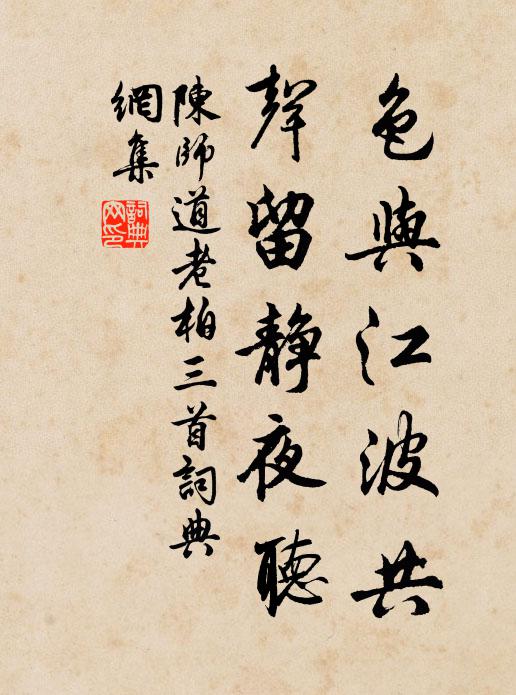 色與江波共
聲留靜夜聽
陳師道老柏三首詞典
網集
詞典
网印